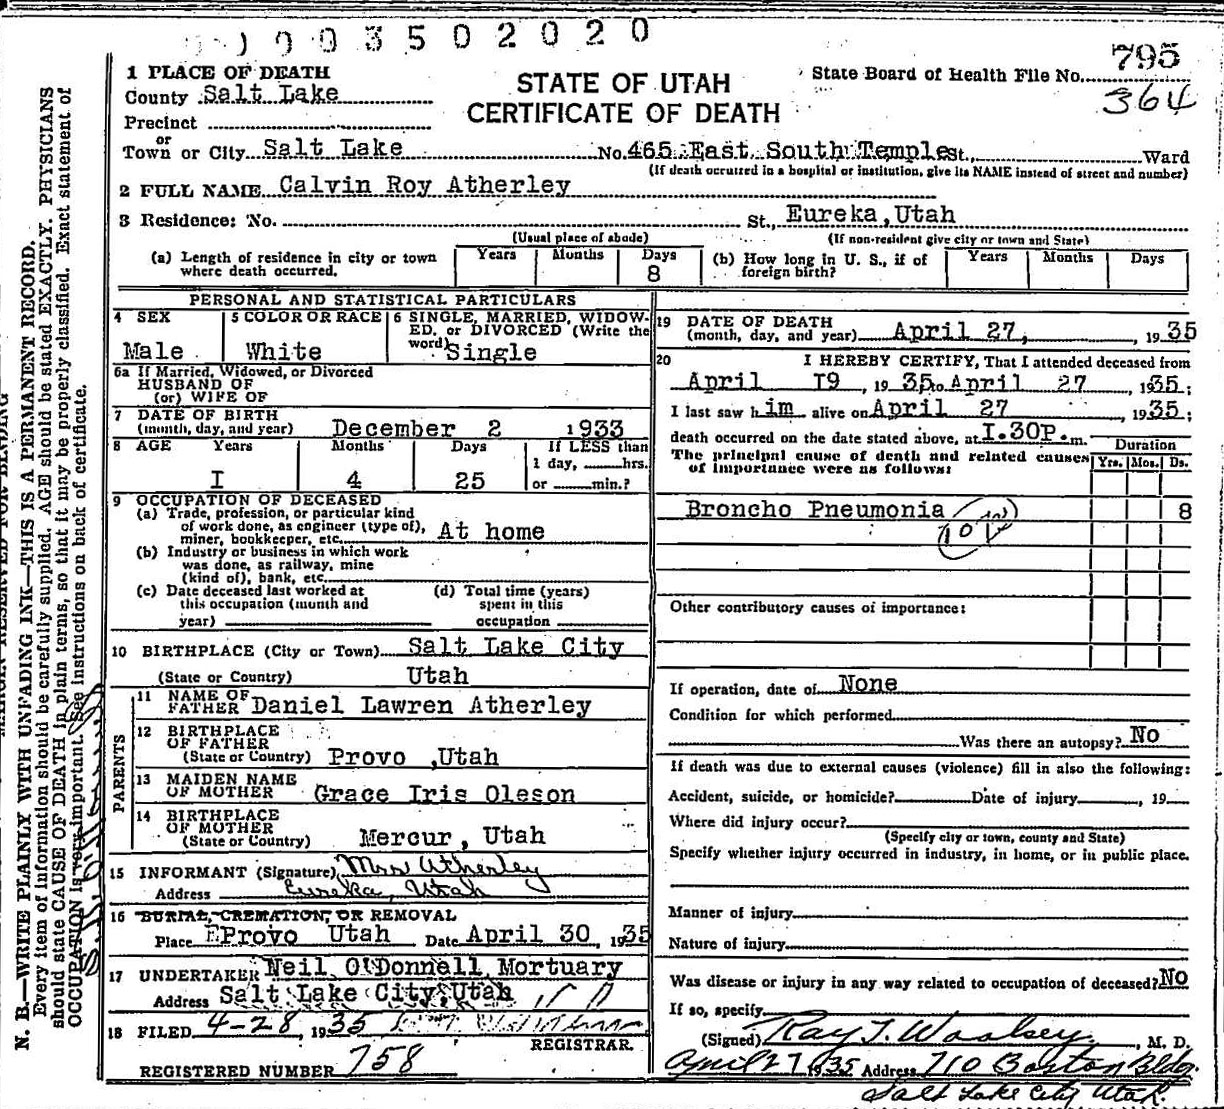 0 0 3 5 0 2 0 2 0
795
364
STATE OF UTAH
CERTIFICATE OF DEATH
State Board of Health File No.
1 PLACE OF DEATH
County Salt Lake
Precinct
or
Town or City Salt Lake No. 465 East South Temple St., Ward
(If death occurred in a hospital or institution, give its NAME instead of street and number)
2 FULL NAME Calvin Roy Atherley
3 Residence: No. St., Eureka, Utah
(Usual place of abode) (If non-resident give city or town and State)
(a) Length of residence in city or town where death occurred. Years Months Days 8
(b) How long in U. S., if of foreign birth? Years Months Days
PERSONAL AND STATISTICAL PARTICULARS
4 SEX Male
5 COLOR OR RACE White
6 SINGLE, MARRIED, WIDOWED, or DIVORCED (Write the word) Single
6a If Married, Widowed, or Divorced
HUSBAND OF
(or) WIFE OF
7 DATE OF BIRTH
(month, day, and year) December 2 1933
8 AGE Years Months Days If LESS than
1 day, hrs.
I 4 25 or min.?
9 OCCUPATION OF DECEASED
(a) Trade, profession, or particular kind
of work done, as engineer (type of),
miner, bookkeeper, etc. At home
(b) Industry or business in which work
was done, as railway, mine
(kind of), bank, etc.
(c) Date deceased last worked at
this occupation (month and
year)
(d) Total time (years)
spent in this
occupation
10 BIRTHPLACE (City or Town) Salt Lake City
(State or Country) Utah
PARENTS
11 NAME OF
FATHER Daniel Lawren Atherley
12 BIRTHPLACE
OF FATHER
(State or Country) Provo ,Utah
13 MAIDEN NAME
OF MOTHER Grace Iris Oleson
14 BIRTHPLACE
OF MOTHER
(State or Country) Mercur, Utah
15 INFORMANT (Signature) Mrs Atherley
Address Eureka, Utah
16 BURIAL, CREMATION, OR REMOVAL
Place Provo Utah Date April 30, 1935
17 UNDERTAKER Neil O'Donnell Mortuary
Address Salt Lake City, Utah
18 FILED 4-28, 1935
REGISTRAR
REGISTERED NUMBER 758
19 DATE OF DEATH
(month, day, and year) April 27, , 1935
20 I HEREBY CERTIFY, That I attended deceased from
April I9, 1935 to April 27 1935;
I last saw him alive on April 27 , 1935;
death occurred on the date stated above, at I.30P.m.
Duration
The principal cause of death and related causes
of importance were as follows: Yrs. Mos. Ds.
Broncho Pneumonia 8
Other contributory causes of importance:
If operation, date of None
Condition for which performed
Was there an autopsy? No
If death was due to external causes (violence) fill in also the following:
Accident, suicide, or homicide? Date of injury , 19
Where did injury occur?
(Specify city or town, county and State)
Specify whether injury occurred in industry, in home, or in public place.
Manner of injury
Nature of injury
Was disease or injury in any way related to occupation of deceased? No
If so, specify
(Signed) Ray T. Woolsey, M. D.
April 27 1935 Address 710 Boston Bldg.
Salt Lake City Utah.
N. B.—WRITE PLAINLY WITH UNFADING INK—THIS IS A PERMANENT RECORD.
Every item of information should be carefully supplied. AGE should be stated EXACTLY. PHYSICIANS
should state CAUSE OF DEATH in plain terms, so that it may be properly classified. Exact statement of
OCCUPATION is very important. See instructions on back of certificate.